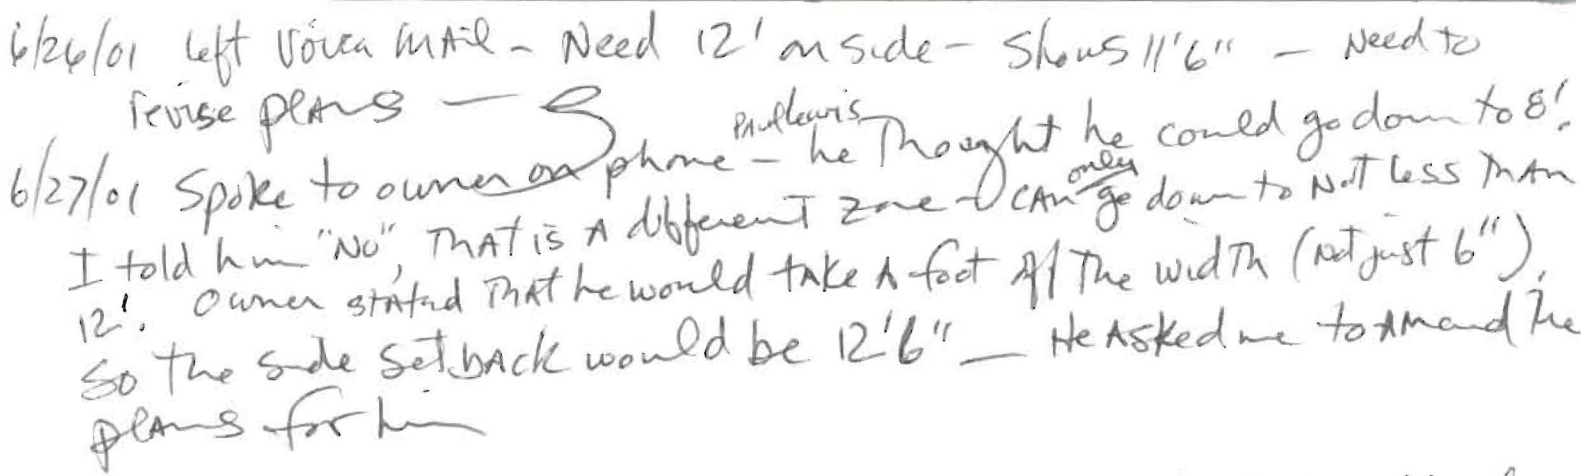 6/26/01 left Voice Mail - Need 12' on side - Shows 11'6" - Need to
revise plans —
6/27/01 Spoke to owner on phone - Paul Lewis he thought he could go down to 8'.
I told him "No", That is A different zone - can only go down to Not less Than
12'. Owner stated That he would take A foot off The width (not just 6"),
So the side setback would be 12'6" — He Asked me to Amend The
plans for him